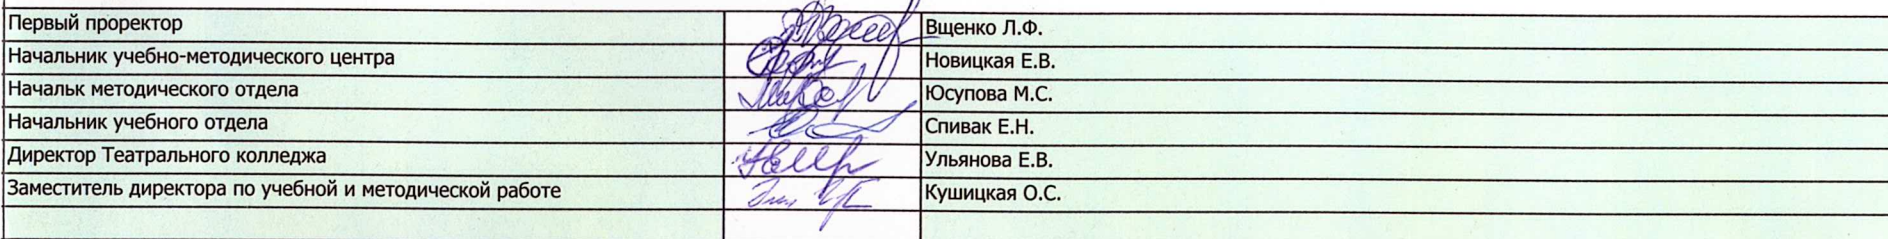 Первый проректор Вщенко Л.Ф.
Начальник учебно-методического центра Новицкая Е.В.
Начальк методического отдела Юсупова М.С.
Начальник учебного отдела Спивак Е.Н.
Директор Театрального колледжа Ульянова Е.В.
Заместитель директора по учебной и методической работе Кушицкая О.С.